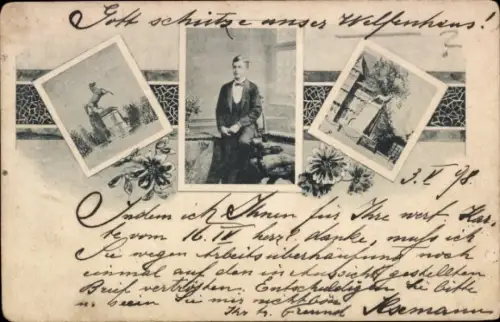 Gott schütze unser Welfenhaus!
?
3. V 98.
Indem ich Ihnen für Ihre wert. Kar-
te vom 16. IV herzl. danke, muß ich
Sie wegen Arbeitsüberhäufung noch
einmal auf den in Aussicht gestellten
Brief vertrösten. Entschuldigen Sie bitte
u. sein Sie mir nicht böse
Ihr tr. Freund